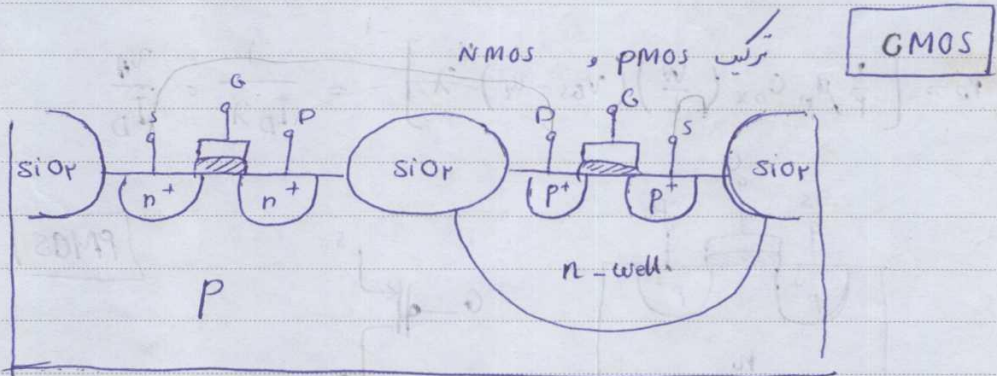 CMOS
ترکیب PMOS و NMOS
G G
S D D S
SiO۲ n+ n+ SiO۲ p+ p+ SiO۲
P n-well